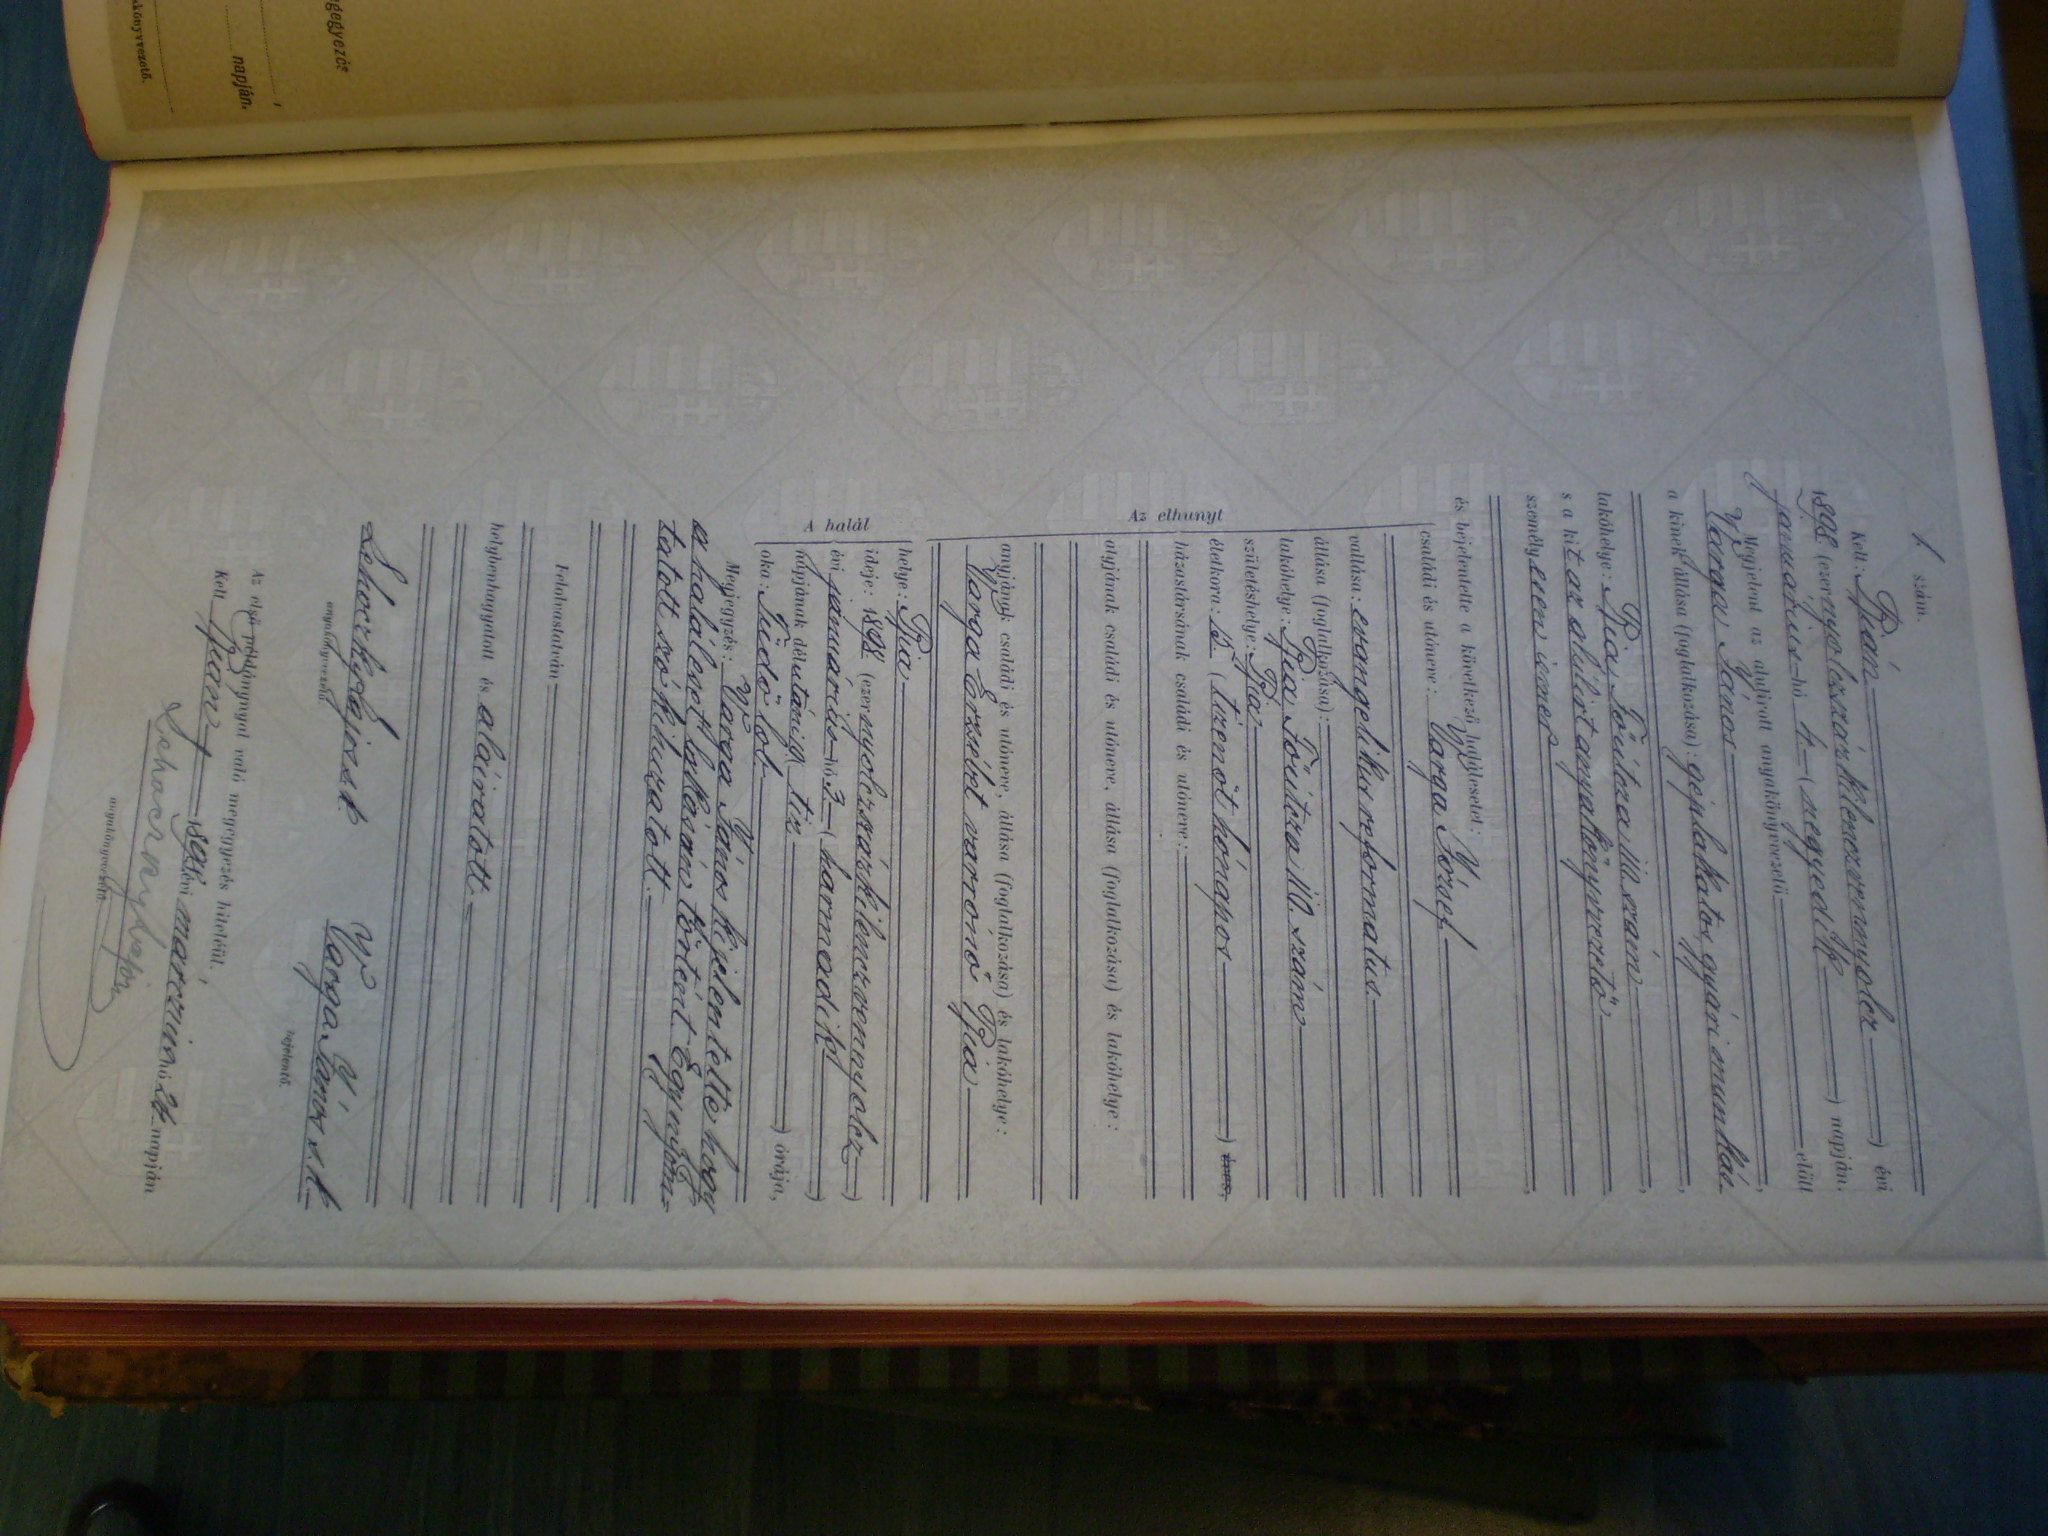 gegyezés
napján.
akönyvvezető.
1. szám.
Kelt: Bián (ezernyolczszázkilenczvennyolcz) évi
1898
januárius hó 4 (negyedik) napján.
Megjelent az alulirott anyakönyvvezető előtt
Varga János,
a kinek állása (foglalkozása): géplakatos, gyári munkás,
lakóhelye: Bia, Főutcza 110. szám,
s a kit az alulirt anyakönyvvezető
személyesen ismer,
és bejelentette a következő halálesetet:
Az elhunyt
családi és utóneve: Varga József
vallása: evangelikus reformatus
állása (foglalkozása):
lakóhelye: Bia, Főutcza 110. szám
születéshelye: Bia
életkora: 15 (tizenöt hónapos) éves,
házastársának családi és utóneve:
atyjának családi és utóneve, állása (foglalkozása) és lakóhelye:
anyjának családi és utóneve, állása (foglalkozása) és lakóhelye:
Varga Erzsébet varrónő Bia
A halál
helye: Bia
ideje: 1898 (ezernyolczszázkilenczvennyolcz)
évi januárius hó 3 (harmadik)
napjának délutánig tiz) órája,
oka: Tüdőlob
Megjegyzés: Varga János kijelentette hogy
a haláleset lakásán történt. Egy nyom-
tatott szó kihuzatott.
Felolvastatván
helybenhagyatott és aláiratott.
anyakönyvvezető
Varga János s. k.
bejelentő.
Az első példánynyal való megegyezés hiteléül.
Kelt Bián, 1898 évi márczius hó 26 napján
anyakönyvvezető.